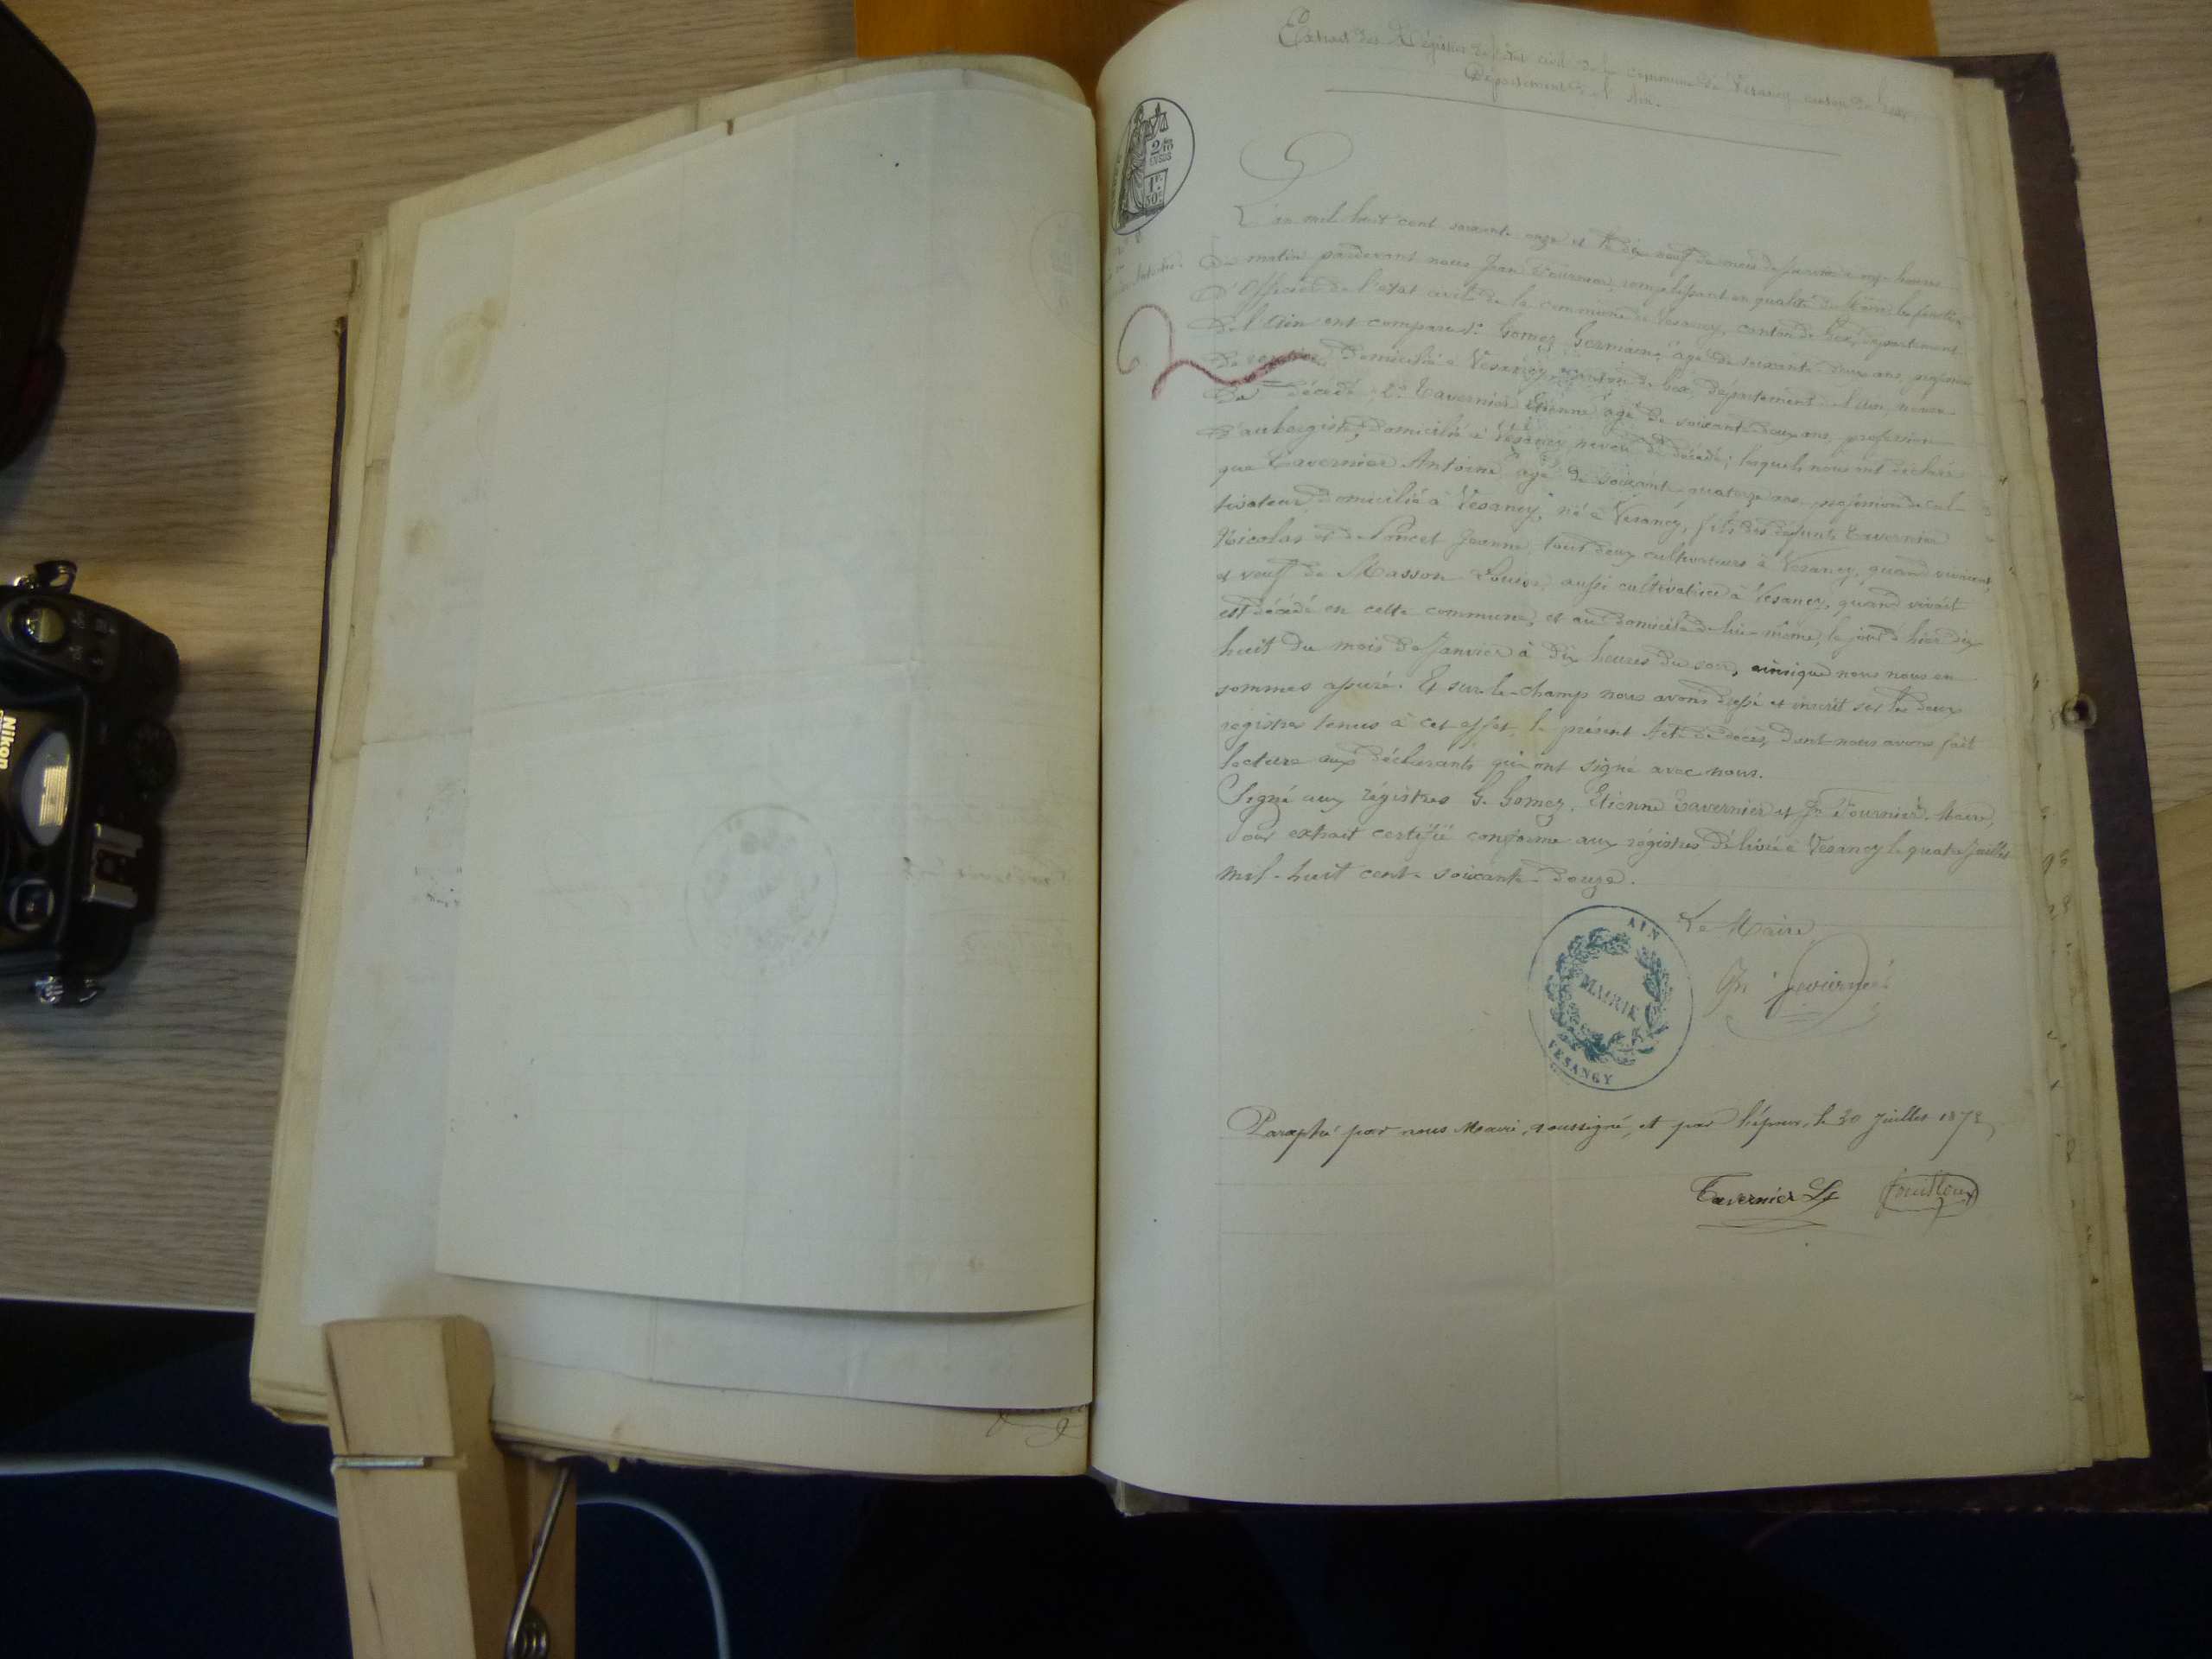 Extrait des Régistres de l'état civil de la commune de Vesancy canton de Gex
Département de l'Ain.
2/10
EN SUS
1F.
50c
L'an mil huit cent soixante onze et le dix neuf du mois de Janvier à onze heures
du matin pardevant nous Jean Fournier, remplissant en qualité de Maire les fonctions
d'Officier de l'état civil de la commune de Vesancy, canton de Gex, département
de l'Ain ont comparu 1º Gomez Germain, âgé de soixante deux ans, profession
de domicilié à Vesancy, canton de Gex, département de l'Ain, neveu
du décédé 2º Tavernier Etienne âgé de soixante deux ans, profession
d'aubergiste, domicilié à Vesancy neveu du décédé; lesquels nous ont déclaré
que Tavernier Antoine, âgé de soixante quatorze ans, profession de cul-
tivateur domicilié à Vesancy, né à Vesancy, fils des défunts Tavernier
Nicolas et de Poncet Jeanne, tout deux cultivateurs à Vesancy, quand vivaient,
et veuf de Masson Louise, aussi cultivatrice à Vesancy, quand vivait
est décédé en cette commune, et au domicile de lui-même, le jour d'hier dix
huit du mois de Janvier à dix heures du soir, ainsique nous nous en
sommes assuré. Et sur-le-champ nous avons dressé et inscrit sur les deux
registres tenus à cet effet, le présent Acte de décès, dont nous avons fait
lecture aux déclarants qui ont signé avec nous.
Signé aux régistres G. Gomez, Etienne Tavernier et Jn Fournier. Maire,
Pour extrait certifié conforme aux régistres délivré à Vesancy le quatre Juillet
mil-huit cent-soixante-douze.
Le Maire
AIN
MAIRIE
VESANCY
Jn Fournier
Paraphé par nous Maire, soussigné, et par l'époux, le 20 Juillet 1872,
Tavernier Ls Fouilloux
Nikon